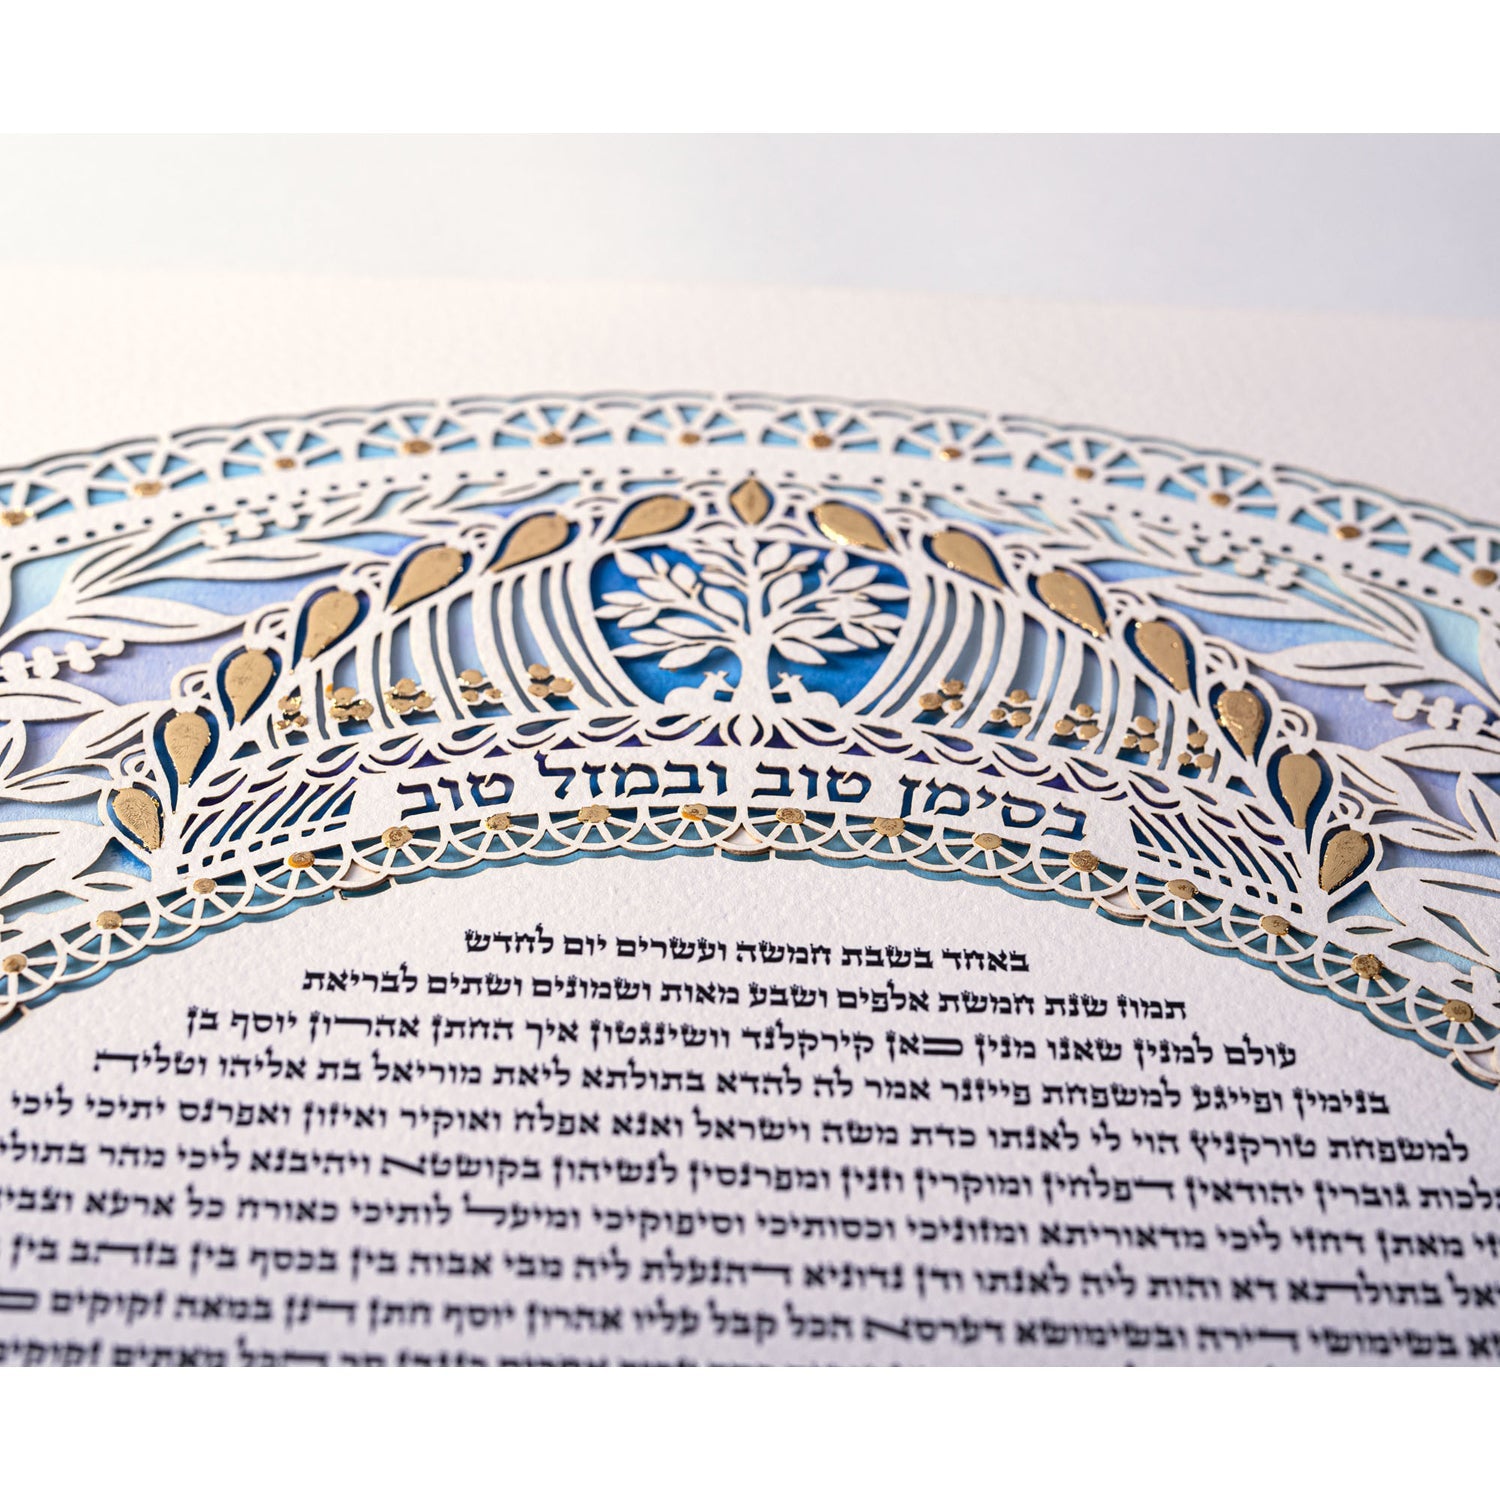 בסימן טוב ובמזל טוב
באחד בשבת חמשה ועשרים יום לחדש
תמוז שנת חמשת אלפים ושבע מאות ושמונים ושתים לבריאת
עולם למנין שאנו מנין כאן קירקלנד וושינגטון איך החתן אהרון יוסף בן
בנימין ופייגע למשפחת פייזנר אמר לה להדא בתולתא ליאת מוריאל בת אליהו וטליה
למשפחת טורקניץ הוי לי לאנתו כדת משה וישראל ואנא אפלח ואוקיר ואיזון ואפרנס יתיכי ליכי
גוברין יהודאין דפלחין ומוקרין וזנין ומפרנסין לנשיהון בקושטא ויהיבנא ליכי מהר
מאתן דחזי ליכי מדאוריתא ומזוניכי וכסותיכי וסיפוקיכי ומיעל לותיכי כאורח כל ארעא
בתולתא דא והות ליה לאנתו ודן נדוניא דהנעלת ליה מבי אבוה בין בכסף בין בזהב בין
בשימושי דירה ובשימושא דערסא הכל קבל עליו אהרון יוסף חתן דנן במאה זקוקים
מאתים